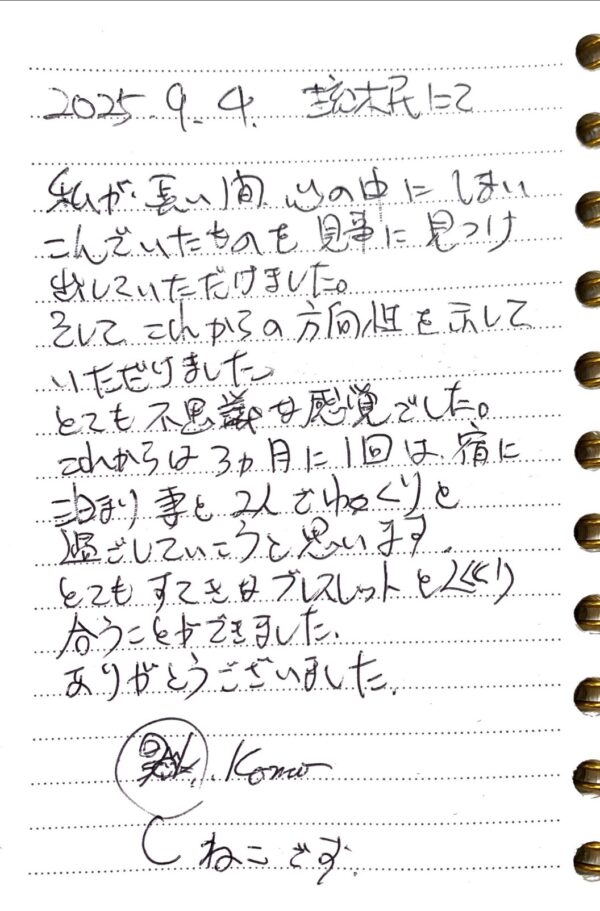 2025.9.4. 
私が長い間心の中にしまい
こんでいたものを見事に見つけ
出していただけました。
そしてこれからの方向性を示して
いただけました。
とても不思議な感覚でした。
これからは3ヵ月に1回は、宿に
泊まり妻と2人でゆっくりと
過ごしていこうと思います。
とてもすてきなブレスレットとめぐり
合うことができました。
ありがとうございました。
ねこです。